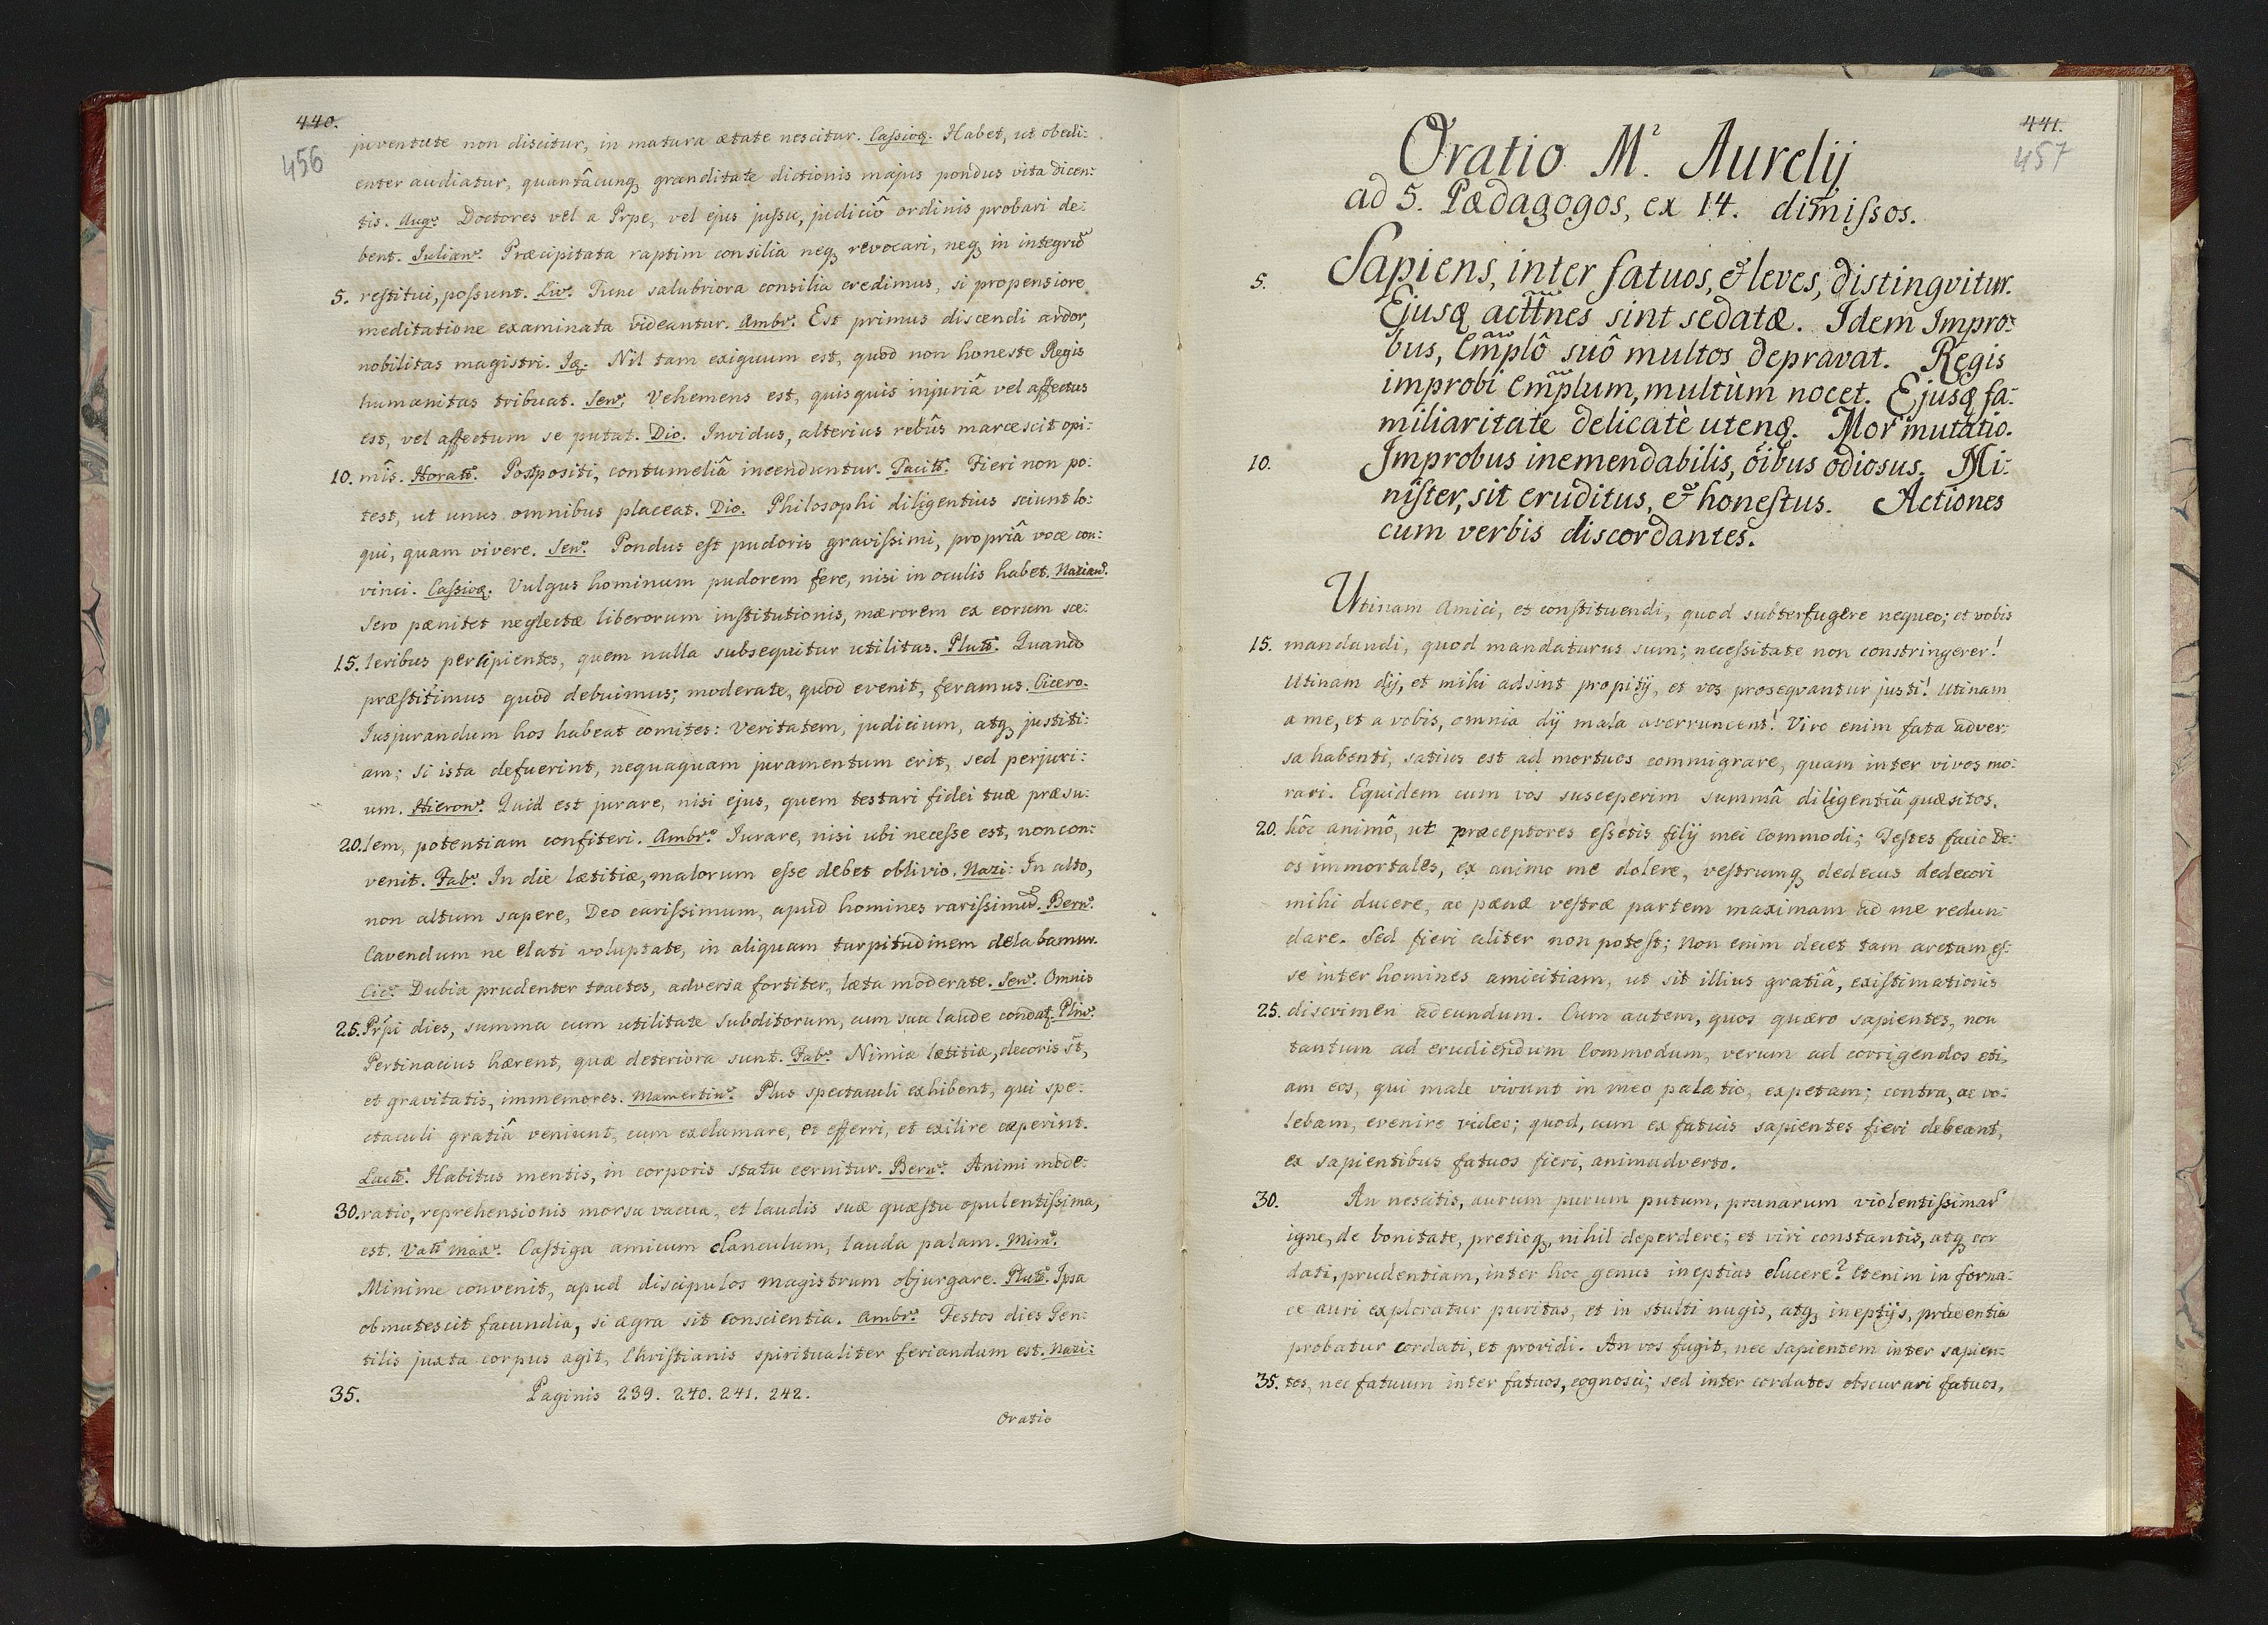 440.
456
juventute non discitur, in matura ætate nescitur. Cassiod. Habet, ut obedi:
enter audiatur, quantâcunq granditate dictionis majus pondus vita dicen:
tis. Aug. Doctores vel a Prpe, vel ejus jussu, judiciô ordinis probari de:
bent. Julian. Præcipitata raptim consilia neq revocari, neq in integrũ
5. restitui, possunt. Liv. Tunc salubriora consilia credimus, si propensiore
meditatione examinata videantur. Ambr. Est primus discendi ardor,
nobilitas magistri. Id. Nil tam exiguum est, quod non honeste Regis
humanitas tribuat. Sen. Vehemens est, quisquis injuriâ vel affectus
est, vel affectum se putat. Dio. Invidus, alterius rebûs marcescit opi:
10. mîs. Horatˢ. Postpositi, contumeliâ incenduntur. Tacitˢ. Fieri non po:
test, ut unus omnibus placeat. Dio. Philosophi diligentius sciunt lo:
qui, quam vivere. Sen. Pondus est pudoris gravissimi, propriâ voce con:
vinci. Cassiod. Vulgus hominum pudorem fere, nisi in oculis habet. Nazian.
Sero pænitet neglectæ liberorum institutionis, mærorem ex eorum sce:
15. leribus percipientes, quem nulla subsequitur utilitas. Plutˢ. Quand
præstitimus quod debuimus; moderate, quod evenit, feramus. Cicero.
Jusjurandum hos habeat comites: Veritatem, judicium, atq justiti:
am; Si ista defuerint, nequaquam juramentum erit, sed perjuri:
um. Hieron. Quid est jurare, nisi ejus, quem testari fidei tuæ præsu:
20. lem, potentiam confiteri. Ambr. Jurare, nisi ubi necesse est, non con:
venit. Fab. In die lætitiæ, malorum esse debet oblivio. Nazi: In alto,
non altum sapere, Deo carissimum, apud homines rarissimũ. Bern.
Cavendum ne elati voluptate, in aliquam turpitudinem delabamur.
Cic. Dubia prudenter tractes, adversa fortiter, læta moderate. Sen. Omnis
25. Prpi dies, summa cum utilitate subditorum, cum sua laude condat. Plin.
Pertinacius hærent, quæ deteriora sunt. Fab. Nimiæ lætitiæ, decoris st,
et gravitatis, immemores. Mamertin. Plus spectaculi exhibent, qui spe:
ctaculi gratiâ veniunt, cum exclamare, et efferri, et exilire cæperint.
Lactˢ. Habitus mentis, in corporis statu cernitur. Bern. Animi mode:
30. ratio, reprehensionis morsu vacua, et laudis suæ quæstu opulentissima,
est. Val Max. Castiga amicum clanculum, lauda palam. Mim.
Minime convenit, apud discipulos magistrum objurgare. Plutˢ. Ipsa
obmutescit facundia, si ægra sit conscientia. Ambr. Festos dies Gen:
tilis juxta corpus agit, Christianis spiritualiter feriandum est. Nazi:
35. Paginis 239. 240. 241. 242.
Oratio
441.
457
Oratio M. Aurelij
ad 5. Pædagogos, ex 14. dimissos.
5. Sapiens, inter fatuos, & leves, distingvitur.
Ejusq acttnes sint sedatæ. Idem Impro:
bus, Cmplô suô multos depravat. Regis
improbi Cmplum, multùm nocet. Ejusq fa:
miliaritate delicatè utend. Mor mutatio.
10. Improbus inemendabilis, oibus odiosus. Mi:
nister, sit eruditus, & honestus. Actiones
cum verbis discordantes.
Utinam amici, et constituendi, quod subterfugere nequeo; et vobis
15. mandandi, quod mandaturus sum; necessitate non constringerer!
Utinam dij, et mihi adsint propitij, et vos prosequantur justi! Utinam
a me, et a vobis, omnia dij mala averruncent! Viro enim fata adver:
sa habenti, satius est ad mortuos commigrare, quam inter vivos mo:
rari. Equidem cum vos susceperim summâ diligentiâ quæsitos,
20. hôc animô, ut præceptores essetis filij mei Commodi; Testes facio De:
os immortales, ex animo me dolere, vestrumq dedecus dedecori
mihi ducere, ac pænæ vestræ partem maximam ad me redun:
dare. Sed fieri aliter non potest; Non enim decet tam arctam es:
se inter homines amicitiam, ut sit illius gratiâ, existimationis
25. discrimen adeundum. Cum autem, quos quæro sapientes, non
tantum ad erudiendum Commodum, verum ad corrigendos eti,
am eos, qui male vivunt in meo palatio, expetam; contra, ac vo:
lebam, evenire video; quod, cum ex fatuis sapientes fieri debeant,
ex sapientibus fatuos fieri, animadverto.
30. An nescitis, aurum purum putum, prunarum violentissimar
igne, de bonitate, pretioq, nihil deperdere; et viri constantis, atq cor
dati, prudentiam, inter hoc genus ineptias elucere? Etenim in forna:
ce auri exploratur puritas, et in stulti nugis, atq ineptijs, prudentia
probatur cordati, et providi. An vos fugit, nec sapientem inter sapien:
35. tes, nec fatuum inter fatuos, cognosci; sed inter cordatos obscurari fatuos,